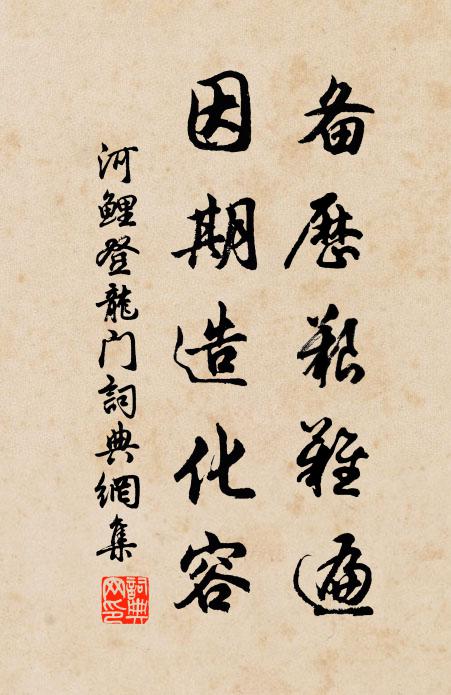 备歷艱難遍
因期造化容
河鯉登龍门詞典網集
詞典网印